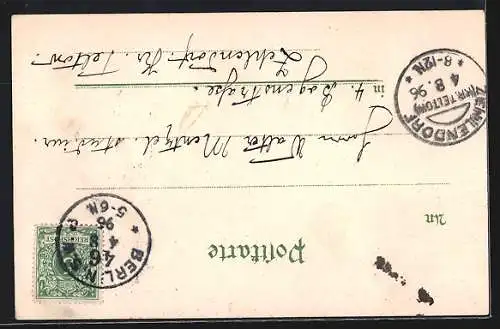 Postkarte
An
Herrn Walter Mentzel. stud. iur.
in 4. Bogenstraße.
Zehlendorf. Kr. Teltow.
BERLIN
4 8
96
5-6N.
ZEHLENDORF
(KR. TELTOW)
4 8 96
8-12N
REICHSPOST